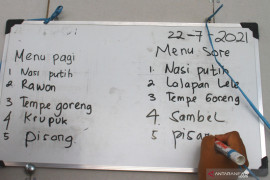 22-7-2021
Menu pagi
1 Nasi putih
2 Rawon
3 Tempe goreng
4 Krupuk
5 pisong
Menu Sore
1 Nasi putih
2 Lalapan Lele
3 Tempe Goreng
4 Sambel
5 pisan